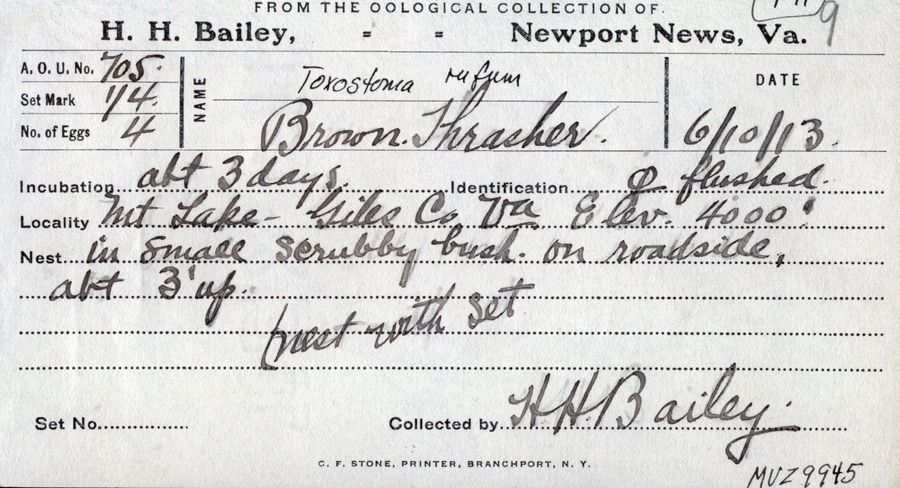 FROM THE OOLOGICAL COLLECTION OF.
H. H. Bailey, = = Newport News, Va. 9
A. O. U. No. 705.
Set Mark 1/4.
No. of Eggs 4
NAME
Toxostoma rufum
Brown. Thrasher.
DATE
6/10/13.
Incubation abt 3 days. Identification ♀ flushed.
Locality Mt Lake - Giles Co Va Elev. 4000'
Nest in small scrubby bush. on roadside,
abt 3' up.
(nest with set
Set No.
Collected by H H Bailey.
C. F. STONE, PRINTER, BRANCHPORT, N. Y.
MVZ 9945